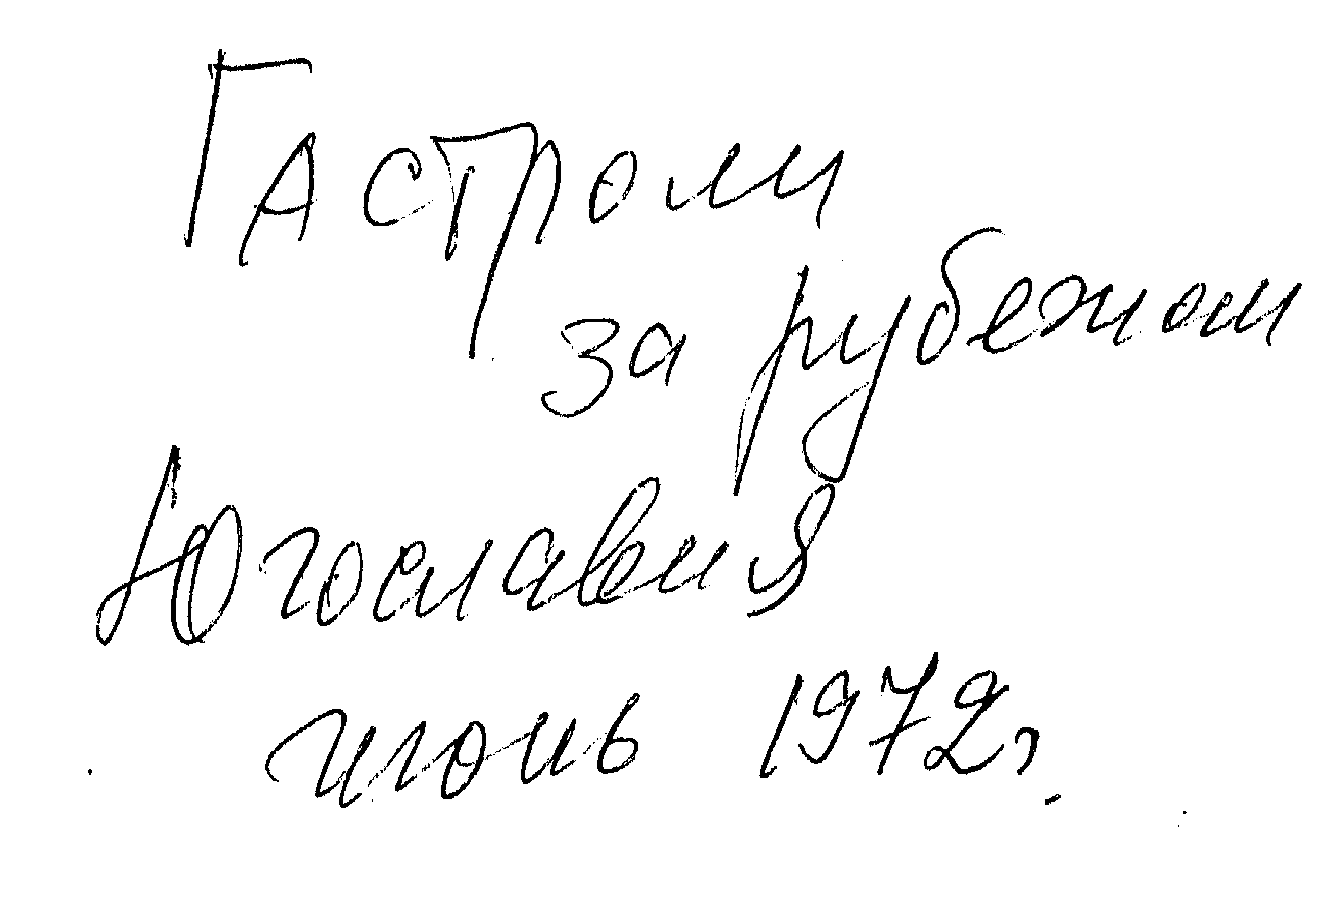 Гастроли
за рубежом
Югославия
июнь 1972г.